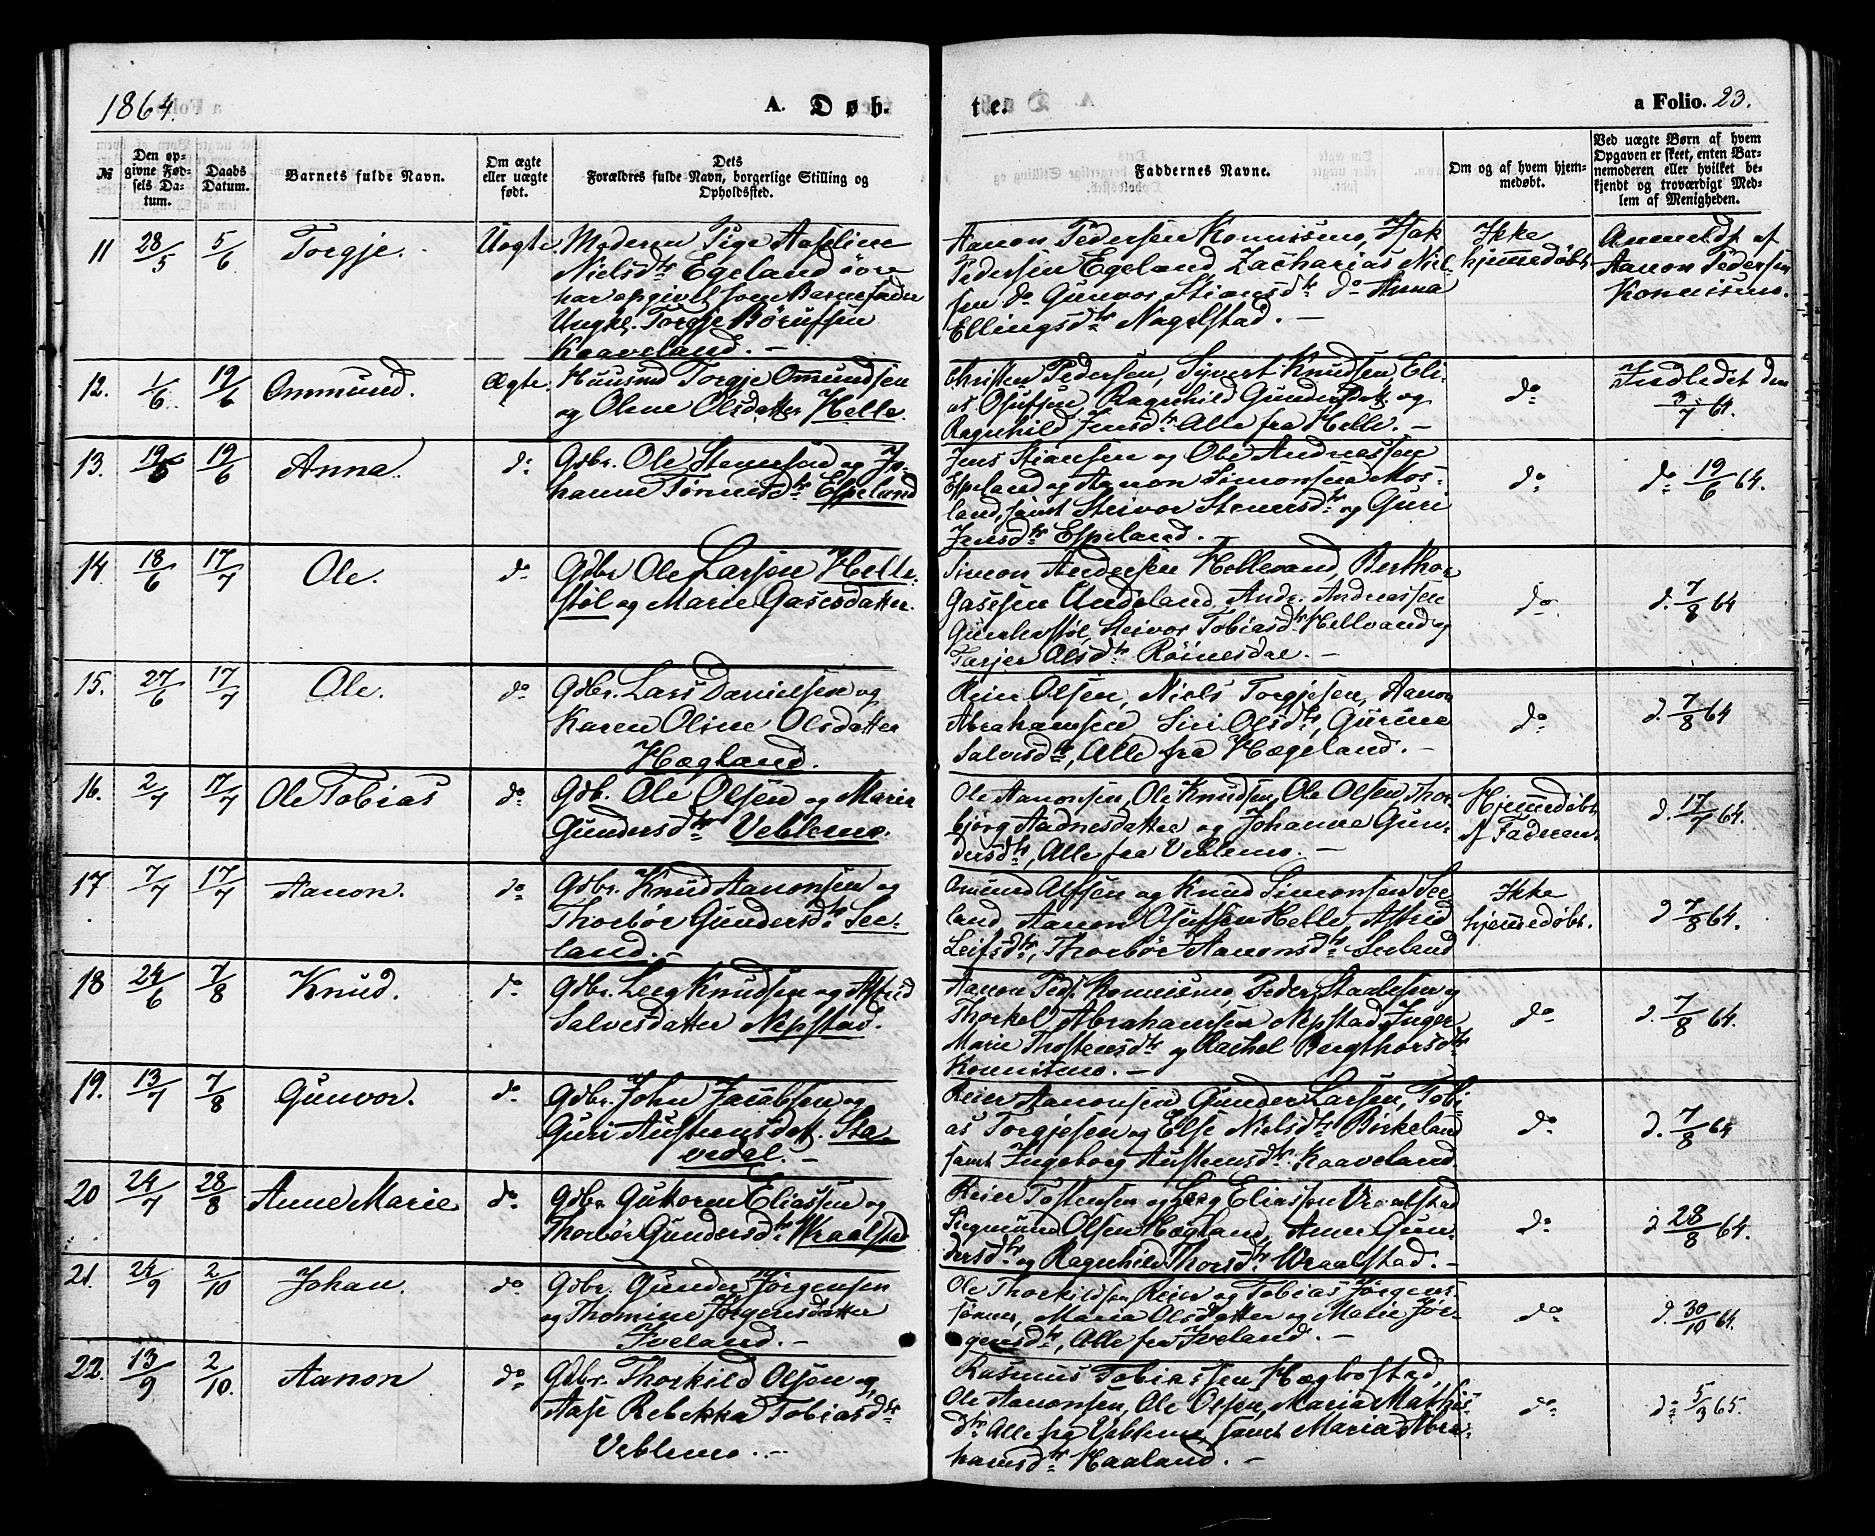 1864.
A. Døb-
te.
a Folio. 23.
№
Den op-
givne Fød-
sels Da-
tum.
Daabs
Datum.
Barnets fulde Navn.
Om ægte
eller uægte
født.
Dets
Forældres fulde Navn, borgerlige Stilling og
Opholdssted.
Faddernes Navne.
Om og af hvem hjem-
medøbt.
Ved uægte Børn af hvem
Opgaven er skeet, enten Bar-
nemoderen eller hvilket be-
kjendt og troværdigt Med-
lem af Menigheden.
11 28/5 5/6 Torgje. Uægte. Moderen Pige Aaseline
Nielsdtr Egeland søre
har opgivet som Barnefader
Ungkl. Torgje Børufsen
Kaaveland. —
Aanon Pedersen Konnismo, Isak
Pedersen Egeland, Zacharias Niel-
sen do Gunvor Stiansdtr do Anna
Ellingsdtr Nagelstad. —
Ikke
hjemmedøbt.
Anmeldt af
Aanon Pedersen
Konnismo.
12. 1/6 19/6 Ommund. Ægte. Huusmd Torgje Omundsen
og Olene Olsdatter Helle.
Christen Pedersen, Syvert Knudsen, Eli-
as Osufsen, Ragnhild Gundersdtr. og
Ragnhild Jensdtr Alle fra Helle. —
do
Indledet den
3/7 64.
13. 19/5 19/6 Anna. do Gdbr. Ole Stenersen og Jo-
hanne Tønnesdtr Espeland
Jens Stiansen og Ole Andreassen
Espeland og Aanon Simonsen Mos-
land, samt Steivor Stenersdtr og Guri
Jensdtr Espeland. —
do
do 19/6 64.
14. 18/6 17/7 Ole. do Gdbr Ole Larsen Helle-
støl og Marie Gasesdatter.
Simon Andersen Hellevand, Berthor
Gasesen Undeland, Andr. Andreassen
Gunhestøl, Steivor Tobiasdtr Hellvand og
Tarjer Olsdtr Røinesdal. —
do
d. 7/8 64
15. 27/6 17/7 Ole. do Gdbr. Lars Danielsen og
Karen Oline Olsdatter
Hægland.
Reier Olsen, Niels Torgjesen, Aanon
Abrahamsen, Siri Olsdtr, Gurine
Salvesdtr, Alle fra Hægeland. —
do
d. 7/8 64
16. 2/7 17/7 Ole Tobias do Gdb. Ole Olsen og Maria
Gundersdtr Veblemo.
Ole Aanonsen, Ole Knudsen, Ole Olsen, Thor-
bjørg Aadnesdatter og Johanne Gun-
dersdtr, Alle fra Veblemo. —
Hjemmedøbt
af Faderen.
d. 17/7 64.
17 7/7 17/7 Aanon. do Gdbr. Knud Aanonsen og
Thorbør Gundersdtr See-
land. —
Omund Alfsen og Knud Simonsen See-
land, Aanon Osufsen Helle, Astrid
Leifsdtr, Thorbør Aanonsdtr Seeland
Ikke
hjemmedøbt.
d 7/8 64.
18 24/6 7/8 Knud. do Gdbr. Leeg Knudsen og Astrid
Salvesdatter Nepstad.
Aanon Peds. Konnismo, Peder Staalesen og
Thorkel Abrahamsen Nepstad, Inger
Marie Thostensdtr og Rachel Bergthorsdtr
Konnismo. —
do
d. 7/8 64.
19. 13/7 7/8 Gunvor. do Gdbr. John Jacobsen og
Guri Austensdat. Sta-
vedal. —
Reier Aanonsen Gunder Larsen, Tobi-
as Torgjesen og Else Nielsdtr Birkeland
samt Ingeborg Austensdtr Kaaveland
do
d. 7/8 64
20 24/7 28/8 Anne Marie do Gdbr Gutorm Eliassen og
Thorbør Gundersdtr Wraalstad
Reier Tostensen og Leeg Eliassen Vraalstad
Siegmund Olsen Hægland, Anne Gun-
dersdtr og Ragnhild Thorsdtr Wraalstad. —
do
d 28/8 64.
21. 24/9 2/10 Johan. do Gdbr. Gunder Jørgensen
og Thomine Jørgensdatter
Iveland. —
Ole Thorkildsen, Reier og Tobias Jørgens-
sønner, Maria Olsdatter og Marie Jør-
gensdtr, Alle fra Iveland. —
do
d. 30/10 64.
22. 13/9 2/10. Aanon do Gdbr. Thorkild Olsen og
Aase Rebekka Tobiasdtr
Veblemo. —
Rasmus Tobiassen Hægbostad,
Ole Aanonsen, Ole Olsen, Maria Mathis-
dtr Alle fra Veblemo, samt Maria Abra-
hamsdtr Haaland. —
do
do 5/3 65.